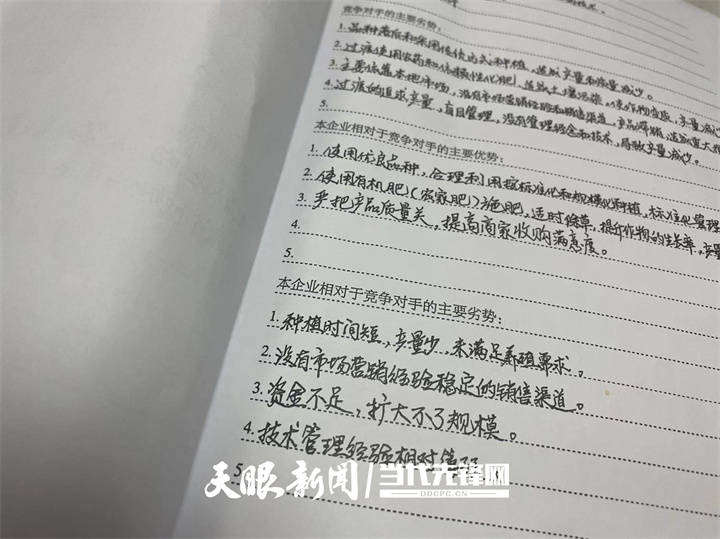 竞争对手的主要劣势:
1. 品种落后和采用传统方式种植,造成产量和质量减少。
2. 过渡使用农药和依赖性化肥,造成土壤污染,
3. 主要依靠本地市场,没有市场营销经验和销售渠道,产品滞销,造成重大
4. 过渡的追求产量,盲目管理,没有管理经验和技术,导致产量减少。
5.
本企业相对于竞争对手的主要优势:
1. 使用优良品种,合理利用 标准化和规模化种植,标准化管理
2. 使用有机肥(农家肥)施肥,适时除草,提升作物的生长率,产量
3. 严把产品质量关,提高商家收购满意度。
4.
5.
本企业相对于竞争对手的主要劣势:
1. 种植时间短,产量少,未满足 需求。
2. 没有市场营销经验稳定的销售渠道。
3. 资金不足,扩大不了规模。
4. 技术管理经验相对
5.
天眼新闻 当代先锋网
DDCPC.CN